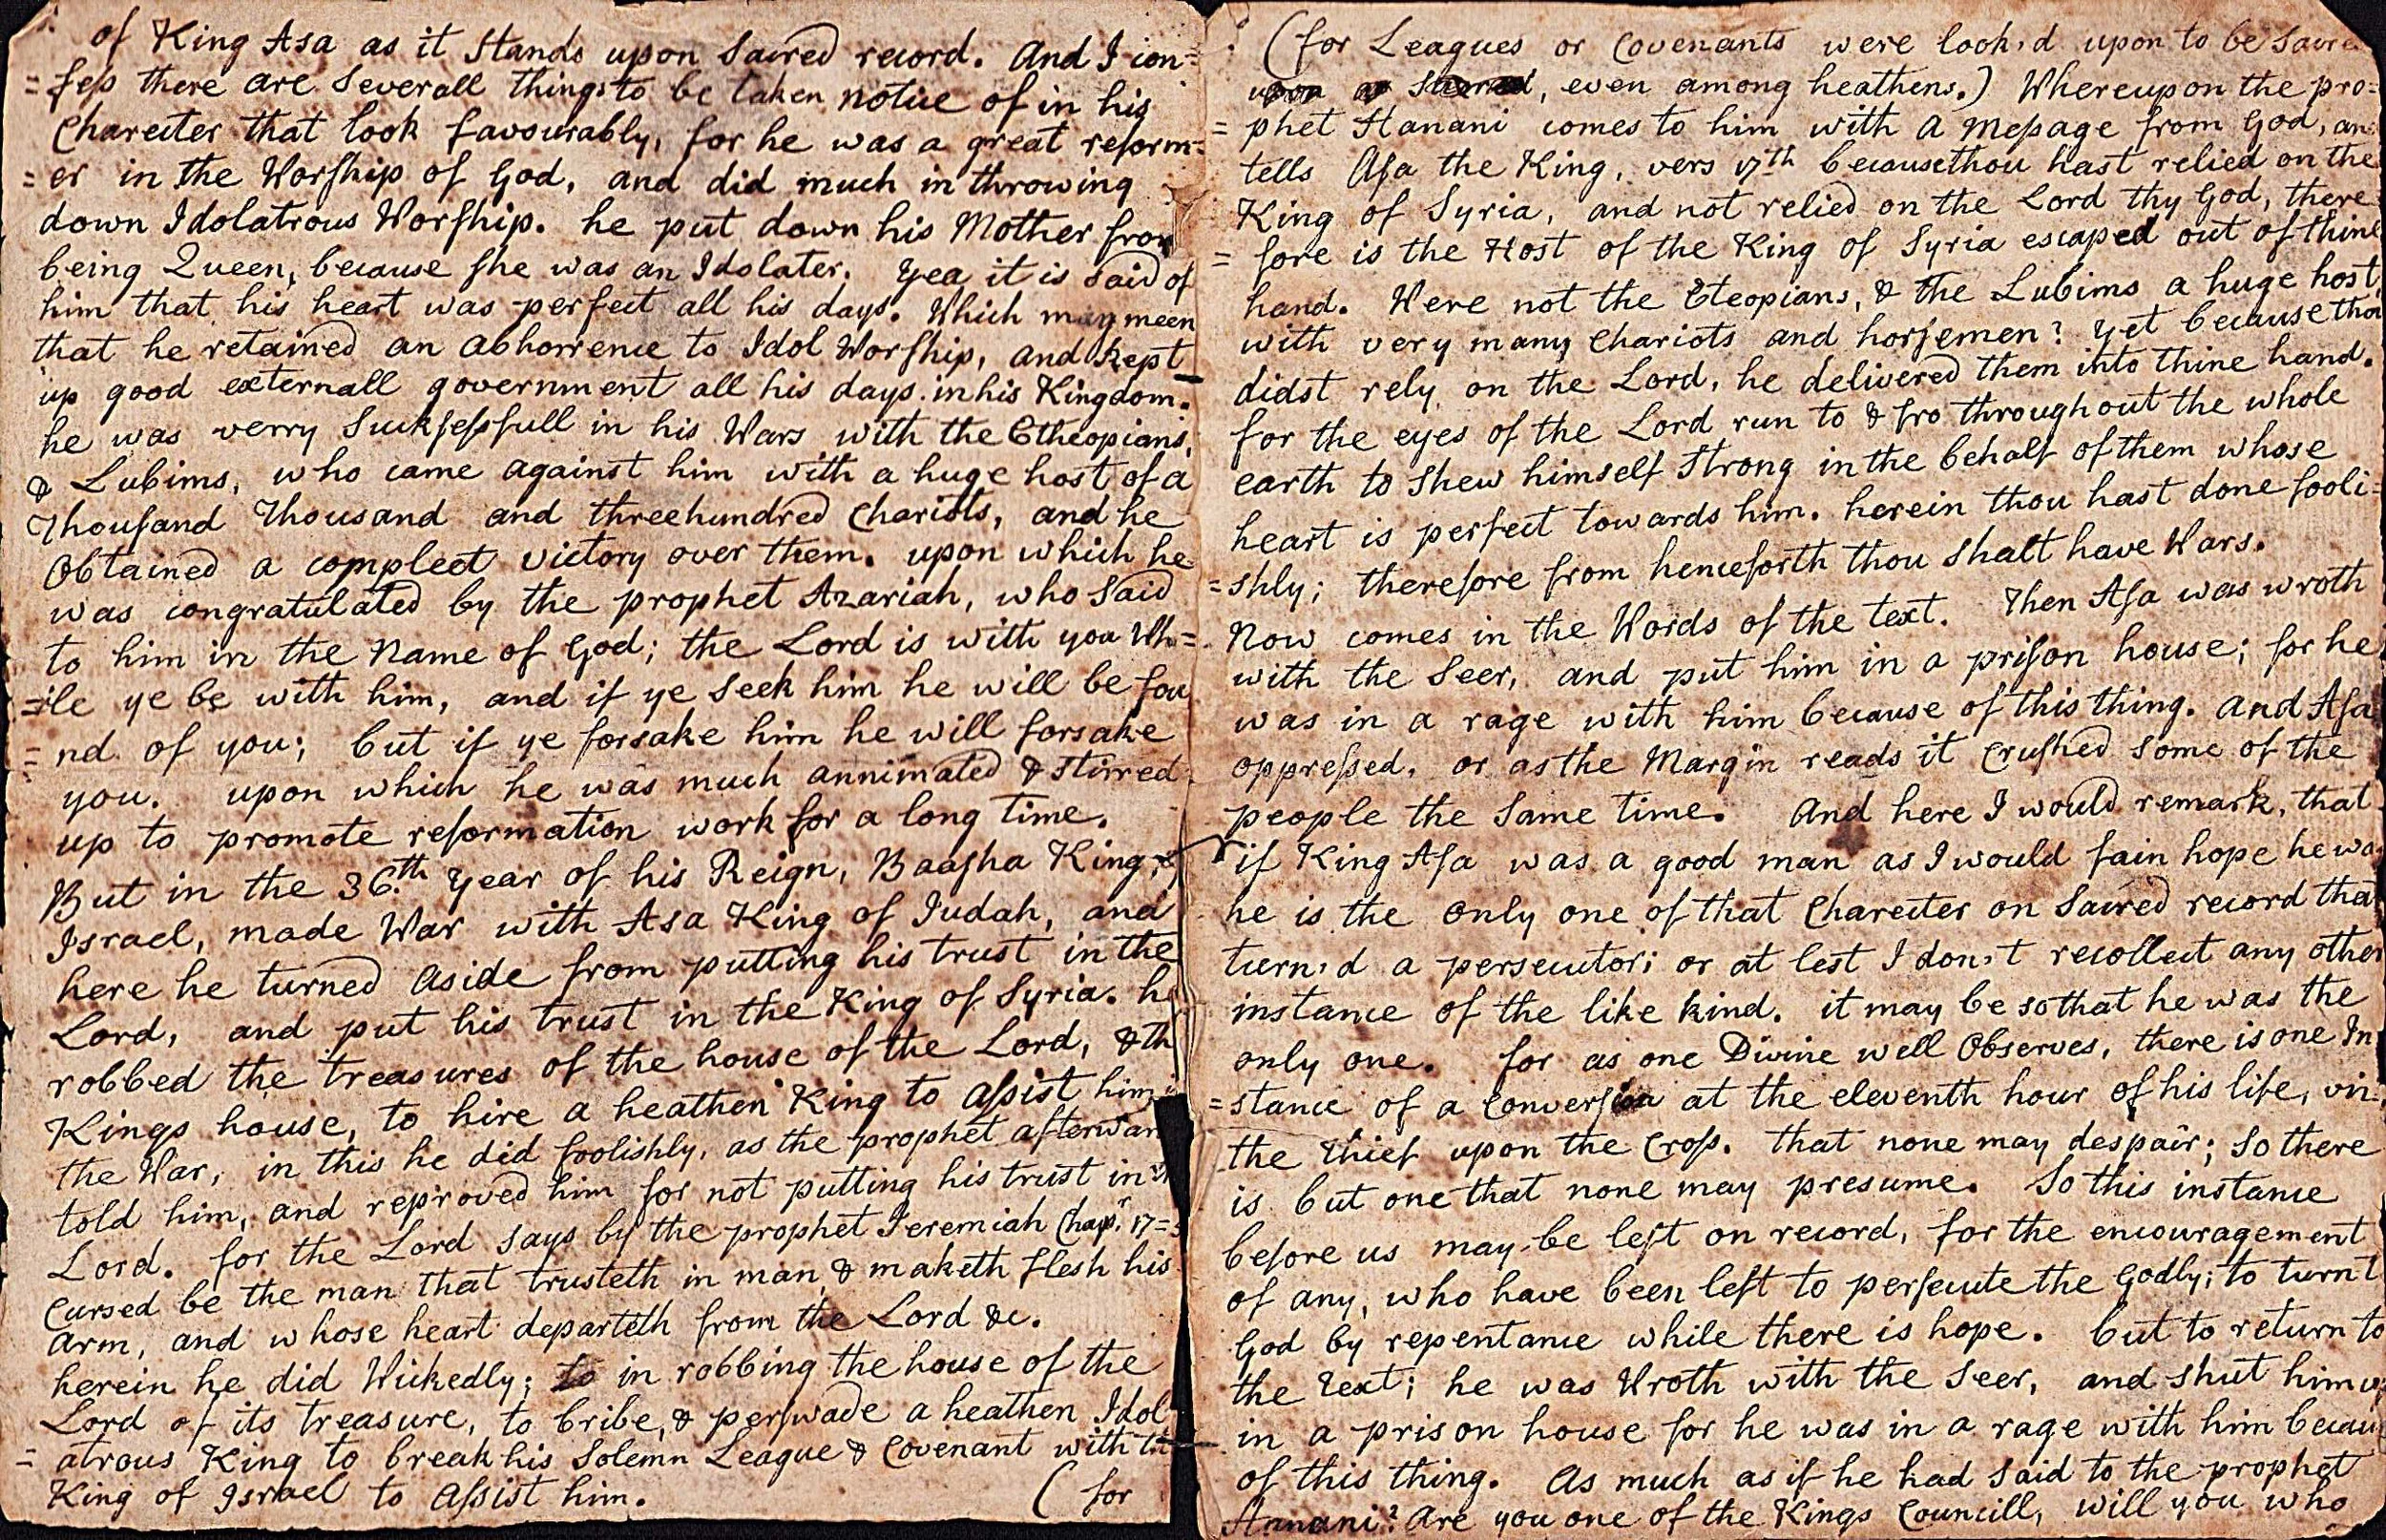 of King Asa as it Stands upon Sacred record. And I con=
=fess there are Severall things to be taken notice of in his
Charecter that look favourably, for he was a great reform=
=er in the Worship of God, and did much in throwing
down Idolatrous Worship. he put down his Mother from
being Queen, because she was an Idolater. Yea it is said of
him that his heart was perfect all his days. Which may meen
that he retained an abhorrence to Idol Worship, and kept
up good externall government all his days in his Kingdom.
he was verry Sucksessfull in his Wars with the Etheopians,
& Lubims, who came against him with a huge host of a
Thousand Thousand and threehundred Chariots, and he
Obtained a compleet victory over them. upon which he
was congratulated by the prophet Azariah, who Said
to him in the Name of God; the Lord is with you Wh=
=ile ye be with him, and if ye Seek him he will be fou
=nd of you; but if ye forsake him he will forsake
you. upon which he was much annimated & Stirred
up to promote reformation work for a long time.
But in the 36.th Year of his Reign, Baasha King of
Israel, made War with Asa King of Judah, and
here he turned aside from putting his trust in the
Lord, and put his trust in the King of Syria. he
robbed the treasures of the house of the Lord, & th
Kings house, to hire a heathen King to assist him in
the War, in this he did foolishly, as the prophet afterwar
told him, and reproved him for not putting his trust in
Lord. for the Lord says by the prophet Jeremiah Chapr. 17=5
Cursed be the man that trusteth in man & maketh flesh his
arm, and whose heart departeth from the Lord &c.
herein he did Wickedly; to in robbing the house of the
Lord of its treasure, to bribe, & perswade a heathen Idol
=atrous King to break his Solemn League & Covenant with the
King of Israel to assist him. (for
(for Leagues or Covenants were look,d upon to be Sacred
upon as Sacred, even among heathens.) Whereupon the pro=
=phet Hanani comes to him with a Message from God, an
tells Asa the King, vers 17th because thou hast relied on the
King of Syria, and not relied on the Lord thy God, there
=fore is the Host of the King of Syria escaped out of thine
hand. Were not the Eteopians, & the Lubims a huge host,
with very many Chariots and horsemen? Yet because thou
didst rely on the Lord, he delivered them into thine hand.
for the eyes of the Lord run to & fro throughout the whole
earth to Shew himself Strong in the behalf of them whose
heart is perfect towards him. herein thou hast done fooli=
=shly; therefore from henceforth thou Shalt have Wars.
Now comes in the Words of the text. Then Asa was wroth
with the Seer, and put him in a prison house; for he
was in a rage with him because of this thing. And Asa
oppressed, or as the Margin reads it Crushed Some of the
people the Same time. And here I would remark, that
if King Asa was a good man as I would fain hope he was
he is the only one of that Charecter on Sacred record that
turn,d a persecutor; or at lest I don,t recollect any other
instance of the like kind. it may be so that he was the
only one. for as one Divine well Observes, there is one In
=stance of a Conversion at the eleventh hour of his life, viz.
the thief upon the Cross. that none may despair; So there
is but one that none may presume. So this instance
before us may be left on record, for the encouragement
of any, who have been left to persecute the Godly; to turn t
God by repentance while there is hope. but to return to
the Text; he was Wroth with the Seer, and shut him up
in a prison house for he was in a rage with him becau
of this thing. As much as if he had Said to the prophet
Hanani? Are you one of the Kings Councill, will you who